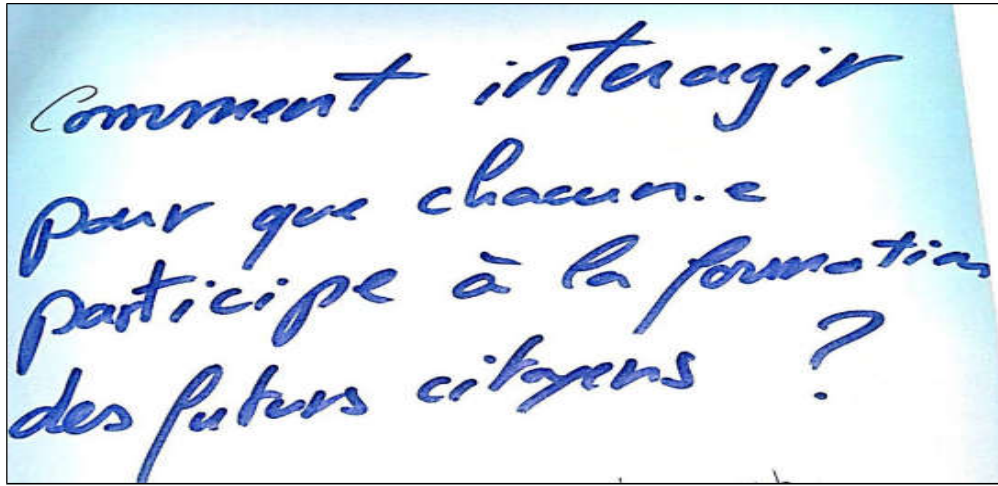 Comment interagir
pour que chacun.e
participe à la formation
des futurs citoyens ?